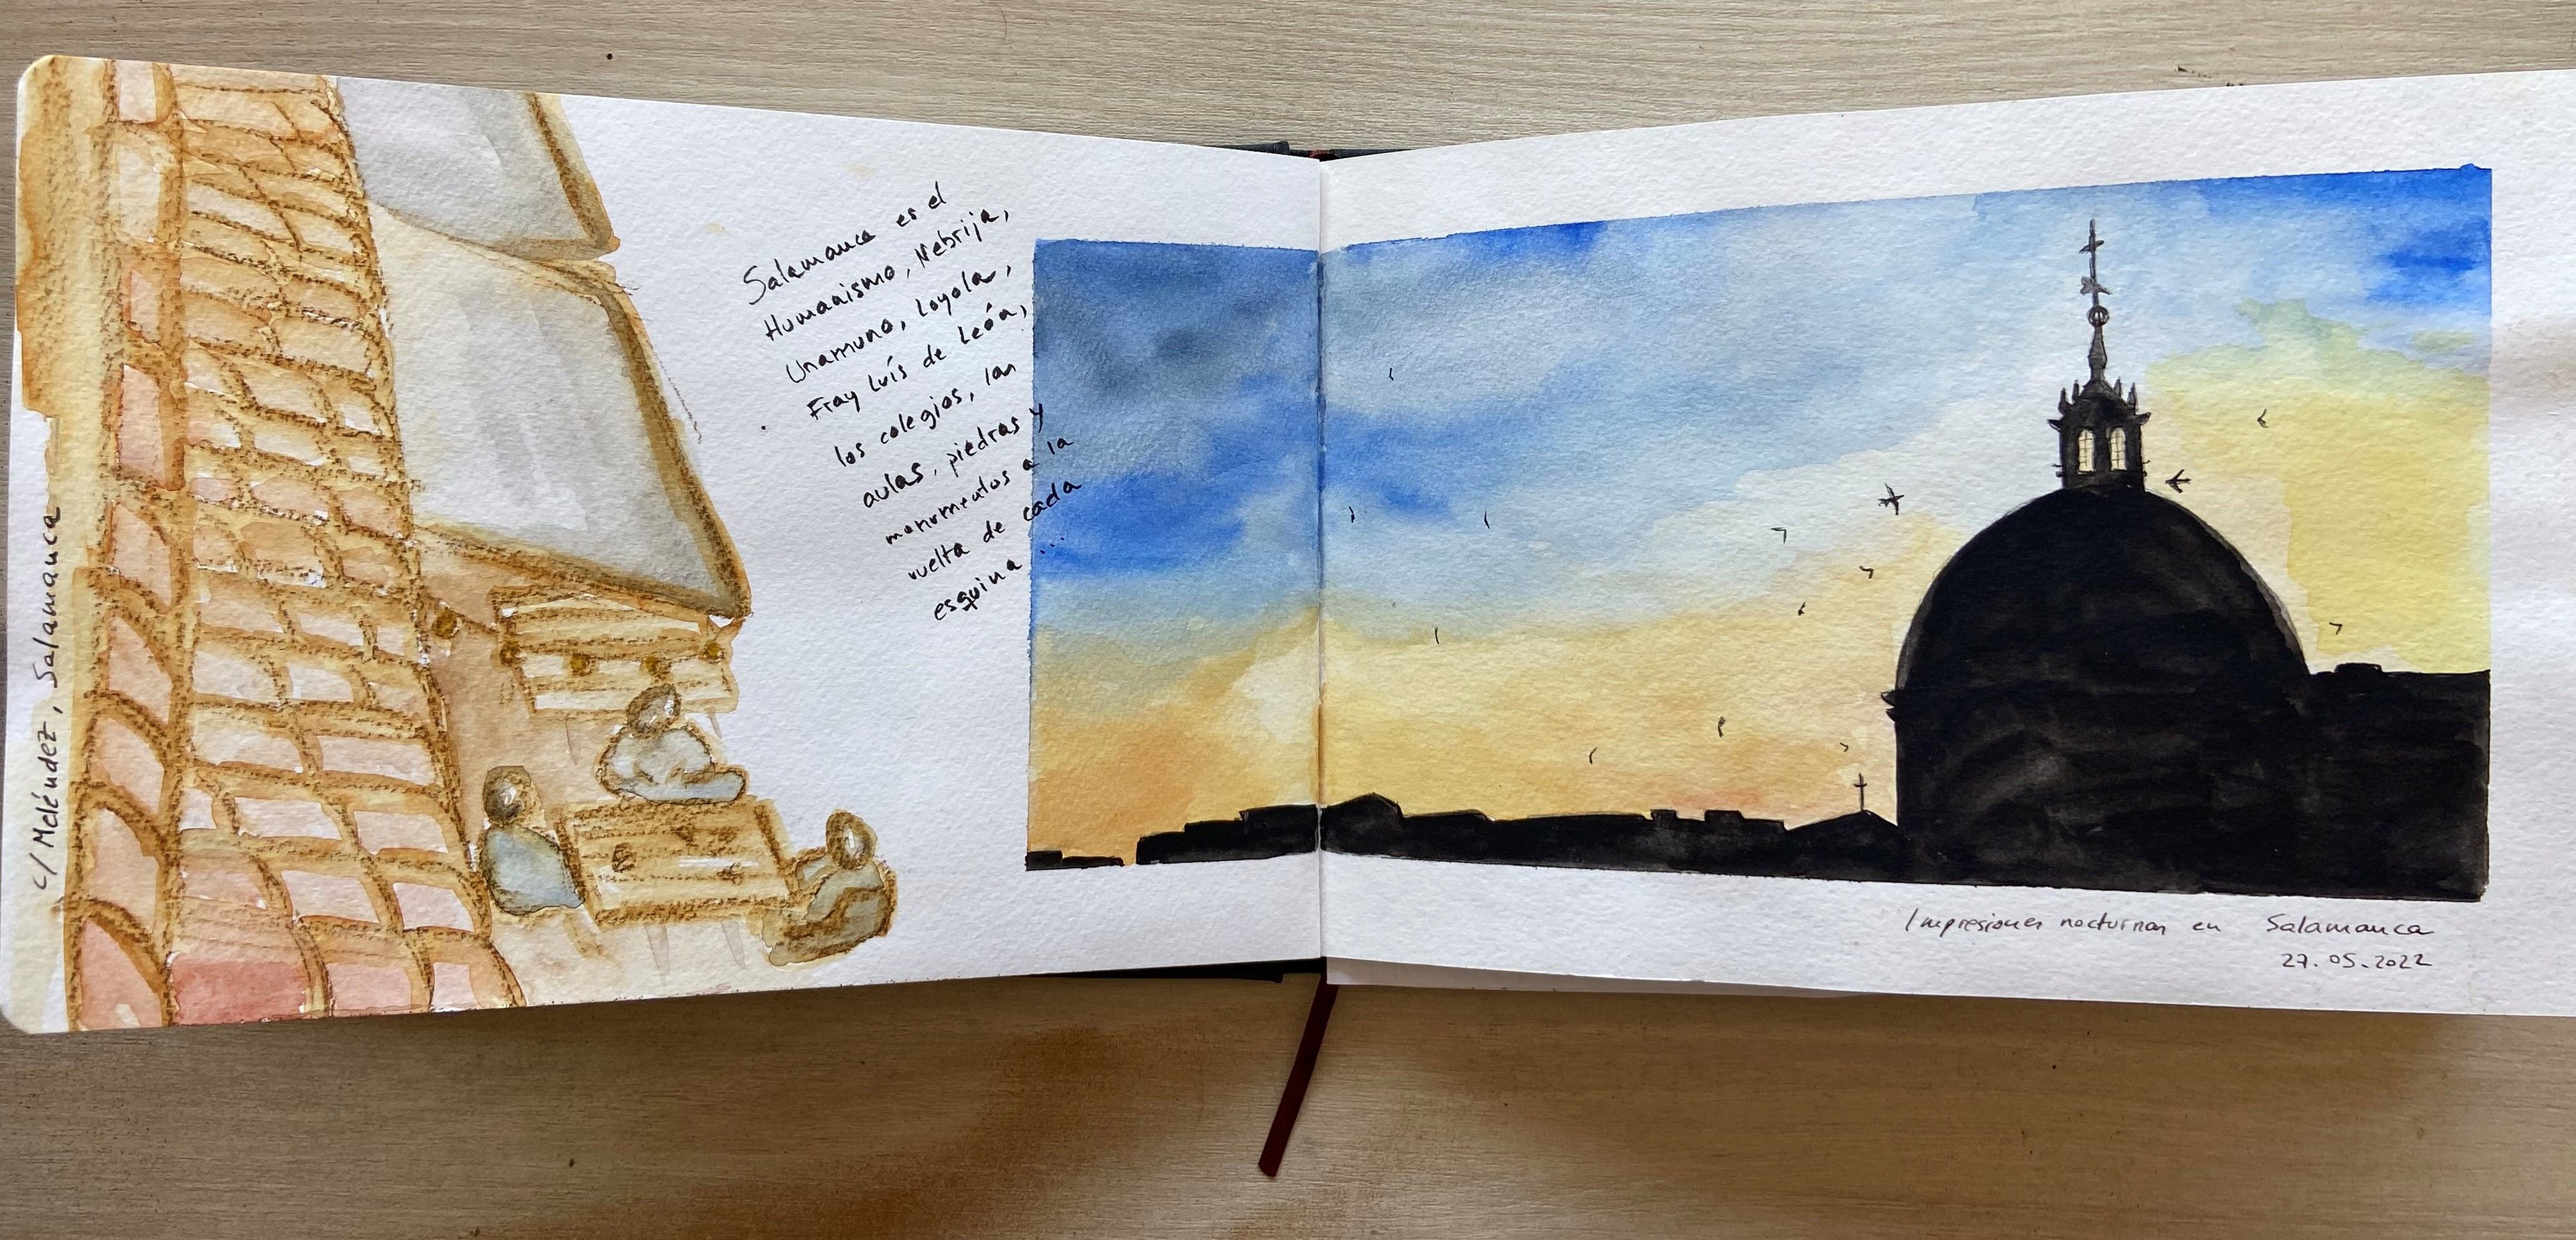 c/ Meléndez, Salamanca
Salamanca es el
Humanismo, Nebrija,
Unamuno, Loyola,
Fray Luís de León,
los colegios, las
aulas, piedras y
monumentos a la
vuelta de cada
esquina ...
Impresiones nocturnas en Salamanca
27.05.2022